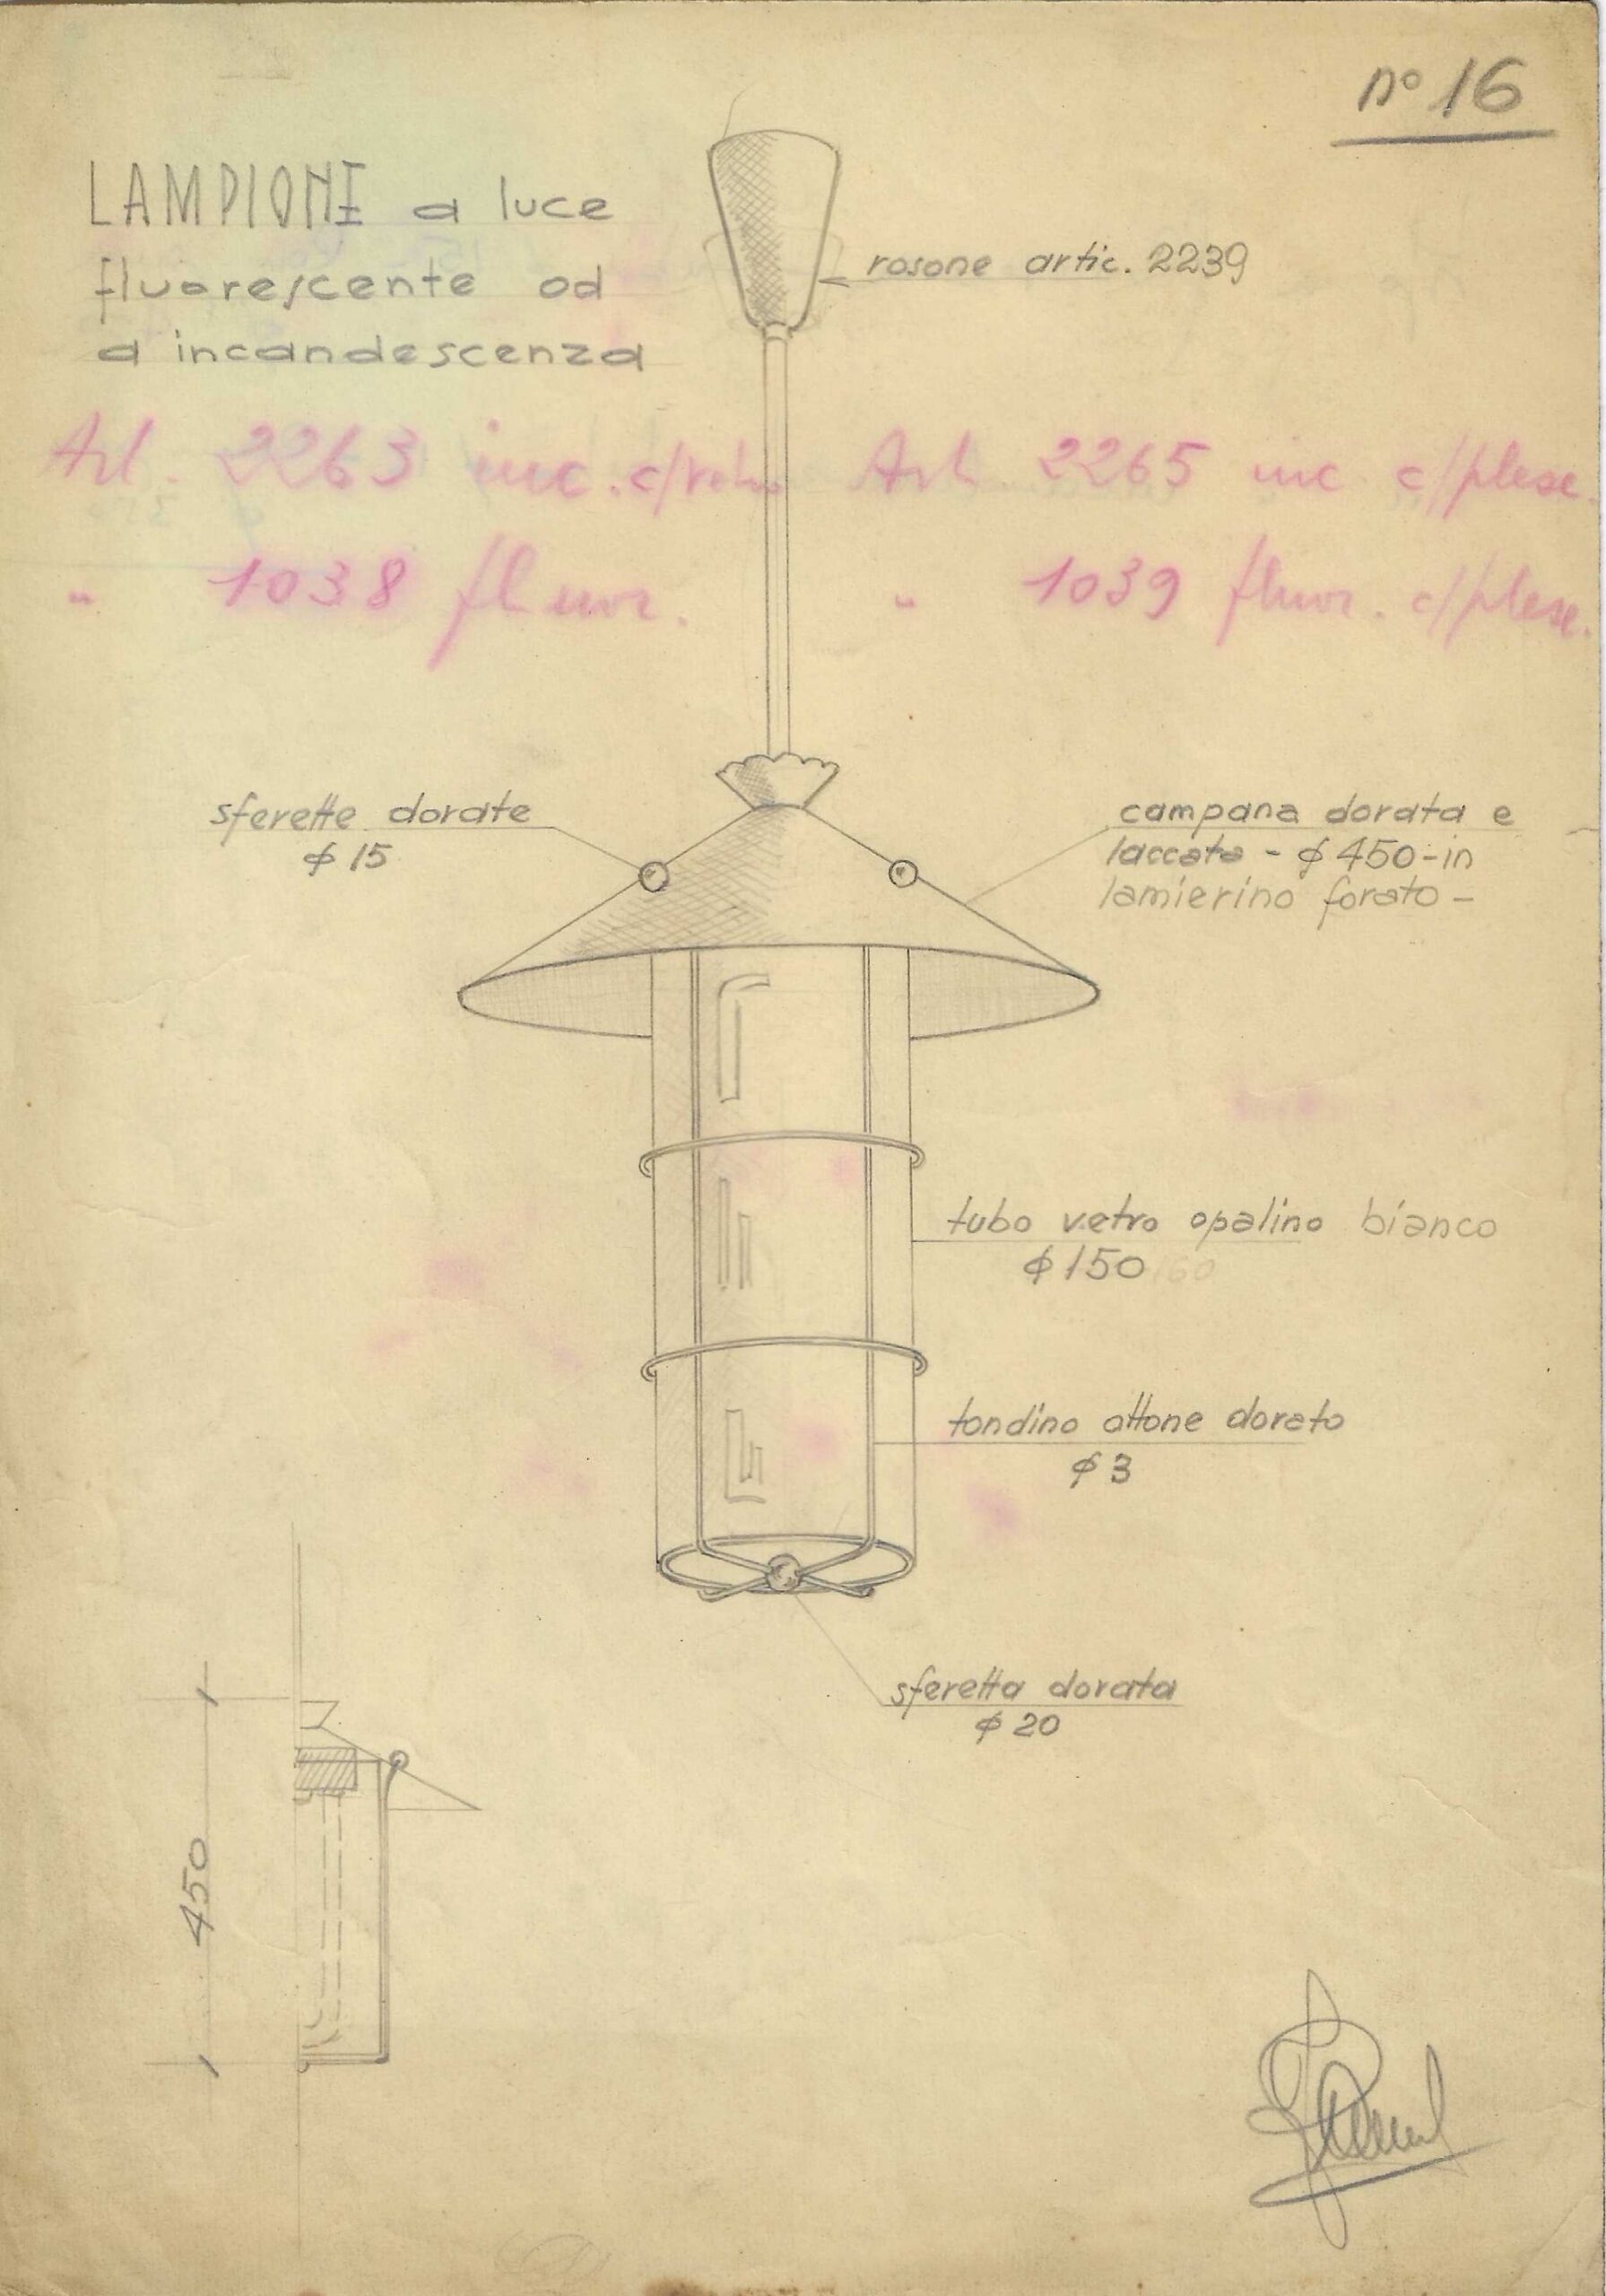 n° 16
LAMPIONE a luce
fluorescente od
a incandescenza
rosone artic. 2239
Art. 2263 inc. c/vetro Art. 2265 inc c/plese.
" 1038 fluor. " 1039 fluor. c/plese.
sferette dorate
ϕ 15
campana dorata e
laccata - ϕ 450 - in
lamierino forato -
tubo vetro opalino bianco
ϕ 150 160
tondino ottone dorato
ϕ 3
sferetta dorata
ϕ 20
450